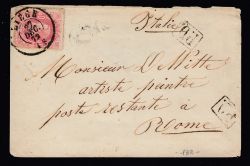 LIEGE
Italie
PD
Monsieur De Witte
artiste peintre
poste restante à
Rome
PD